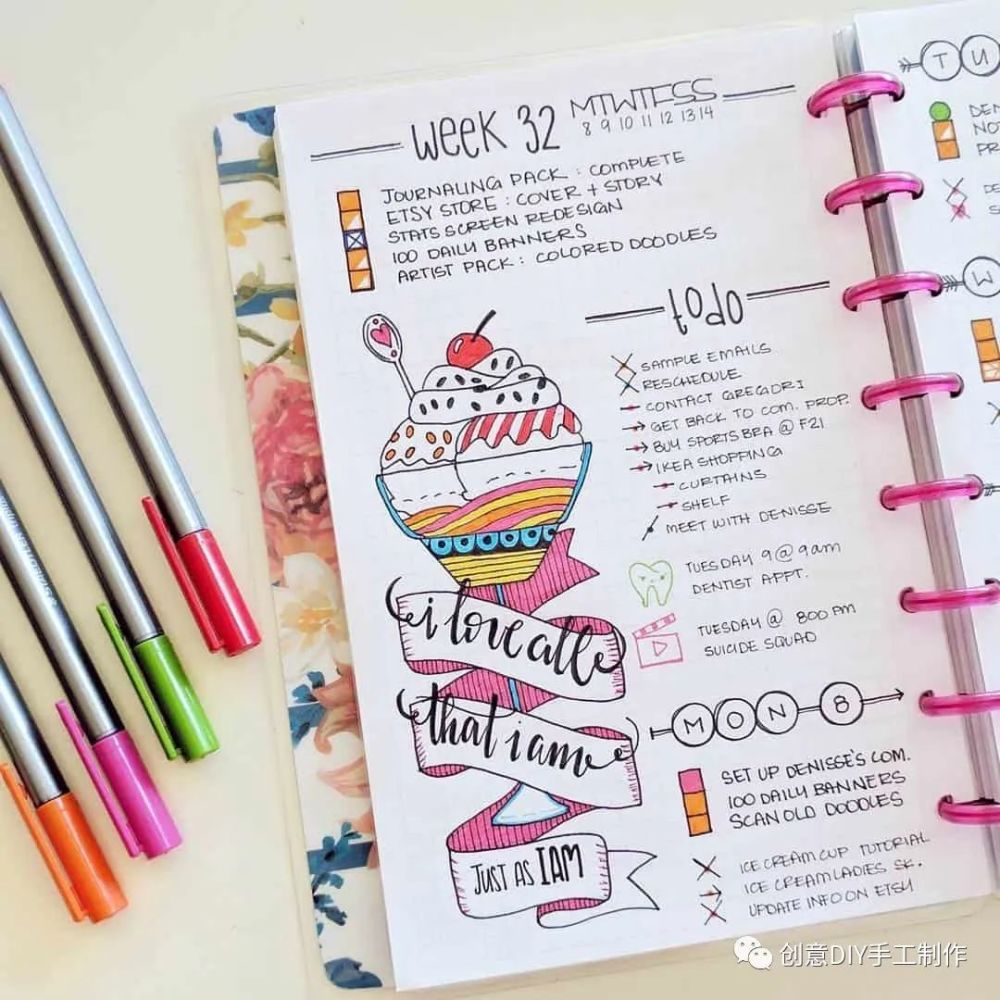 WEEK 32
MTWTFSS
8 9 10 11 12 13 14
JOURNALING PACK : COMPLETE
ETSY STORE : COVER + STORY
STATS SCREEN REDESIGN
100 DAILY BANNERS
ARTIST PACK : COLORED DOODLES
todo
SAMPLE EMAILS
RESCHEDULE
CONTACT GREGORI
GET BACK TO COM. PROP.
BUY SPORTS BRA @ F21
IKEA SHOPPING
CURTAINS
SHELF
MEET WITH DENISSE
TUESDAY 9 @ 9am
DENTIST APPT.
TUESDAY @ 800 PM
SUICIDE SQUAD
i love all
that i am
JUST AS I AM
MON 8
SET UP DENISSE'S COM.
100 DAILY BANNERS
SCAN OLD DOODLES
ICE CREAM CUP TUTORIAL
ICE CREAM LADIES SK.
UPDATE INFO ON ETSY
TU
DEN
NOT
PR
DE
S
W
创意DIY手工制作